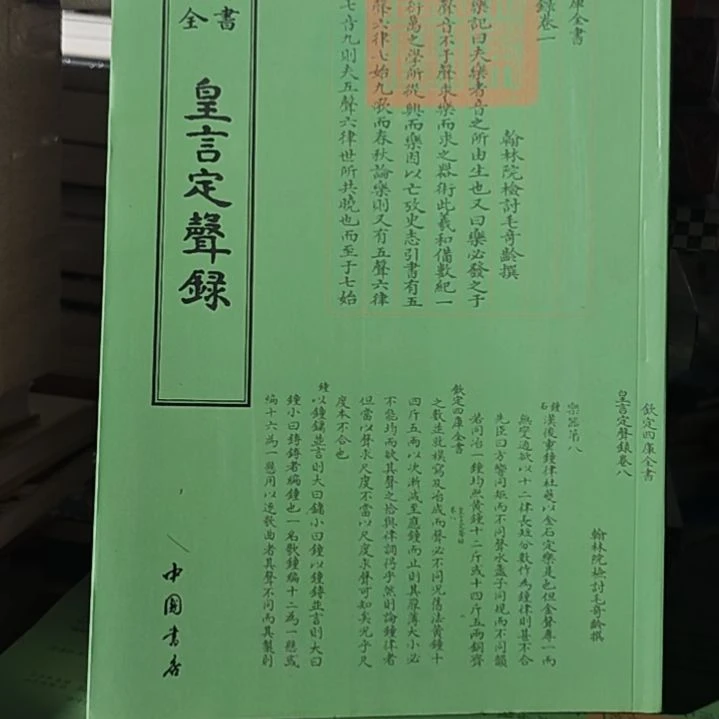 全書
皇言定聲録
中國書店
庫全書
錄卷一
翰林院檢討毛奇齡撰
樂記曰夫樂者音之所由生也又曰樂必發之于
聲音不于聲求樂而求之器術此羲和借數紀一
衍萬之學所從興而樂因以亡攷史志引書有五
聲六律七始九歌而春秋論樂則又有五聲六律
七音九則夫五聲六律世所共曉也而至于七始
欽定四庫全書
皇言定聲錄卷八
翰林院檢討毛奇齡撰
樂器第八
鐘石漢後重鐘律杜夔以金石定樂是也但金聲專一而
無變通欲以十二律長短分數作為鐘律則甚不合
先臣曰方響同矩而不同聲水盞子同規而不同韻
若同冶一鐘均然黃鐘十二斤或十四斤五兩銅齊
欽定四庫全書
之數並鼓模寫及冶成而聲必不同況舊法黃鐘十
四斤五兩以次漸減至應鐘而止則其厚薄大小必
不能均而欲其聲之恰與律調得乎然則論鐘律者
但當以聲求尺度不當以尺度求聲可知矣況乎尺
度本不合也
鐘以鐘鏞並言則大曰鏞小曰鐘以鐘鎛並言則大曰
鐘小曰鎛鎛者編鐘也一名歌鐘編十二為一懸或
編十六為一懸用以逐歌曲者其聲不同而其製則